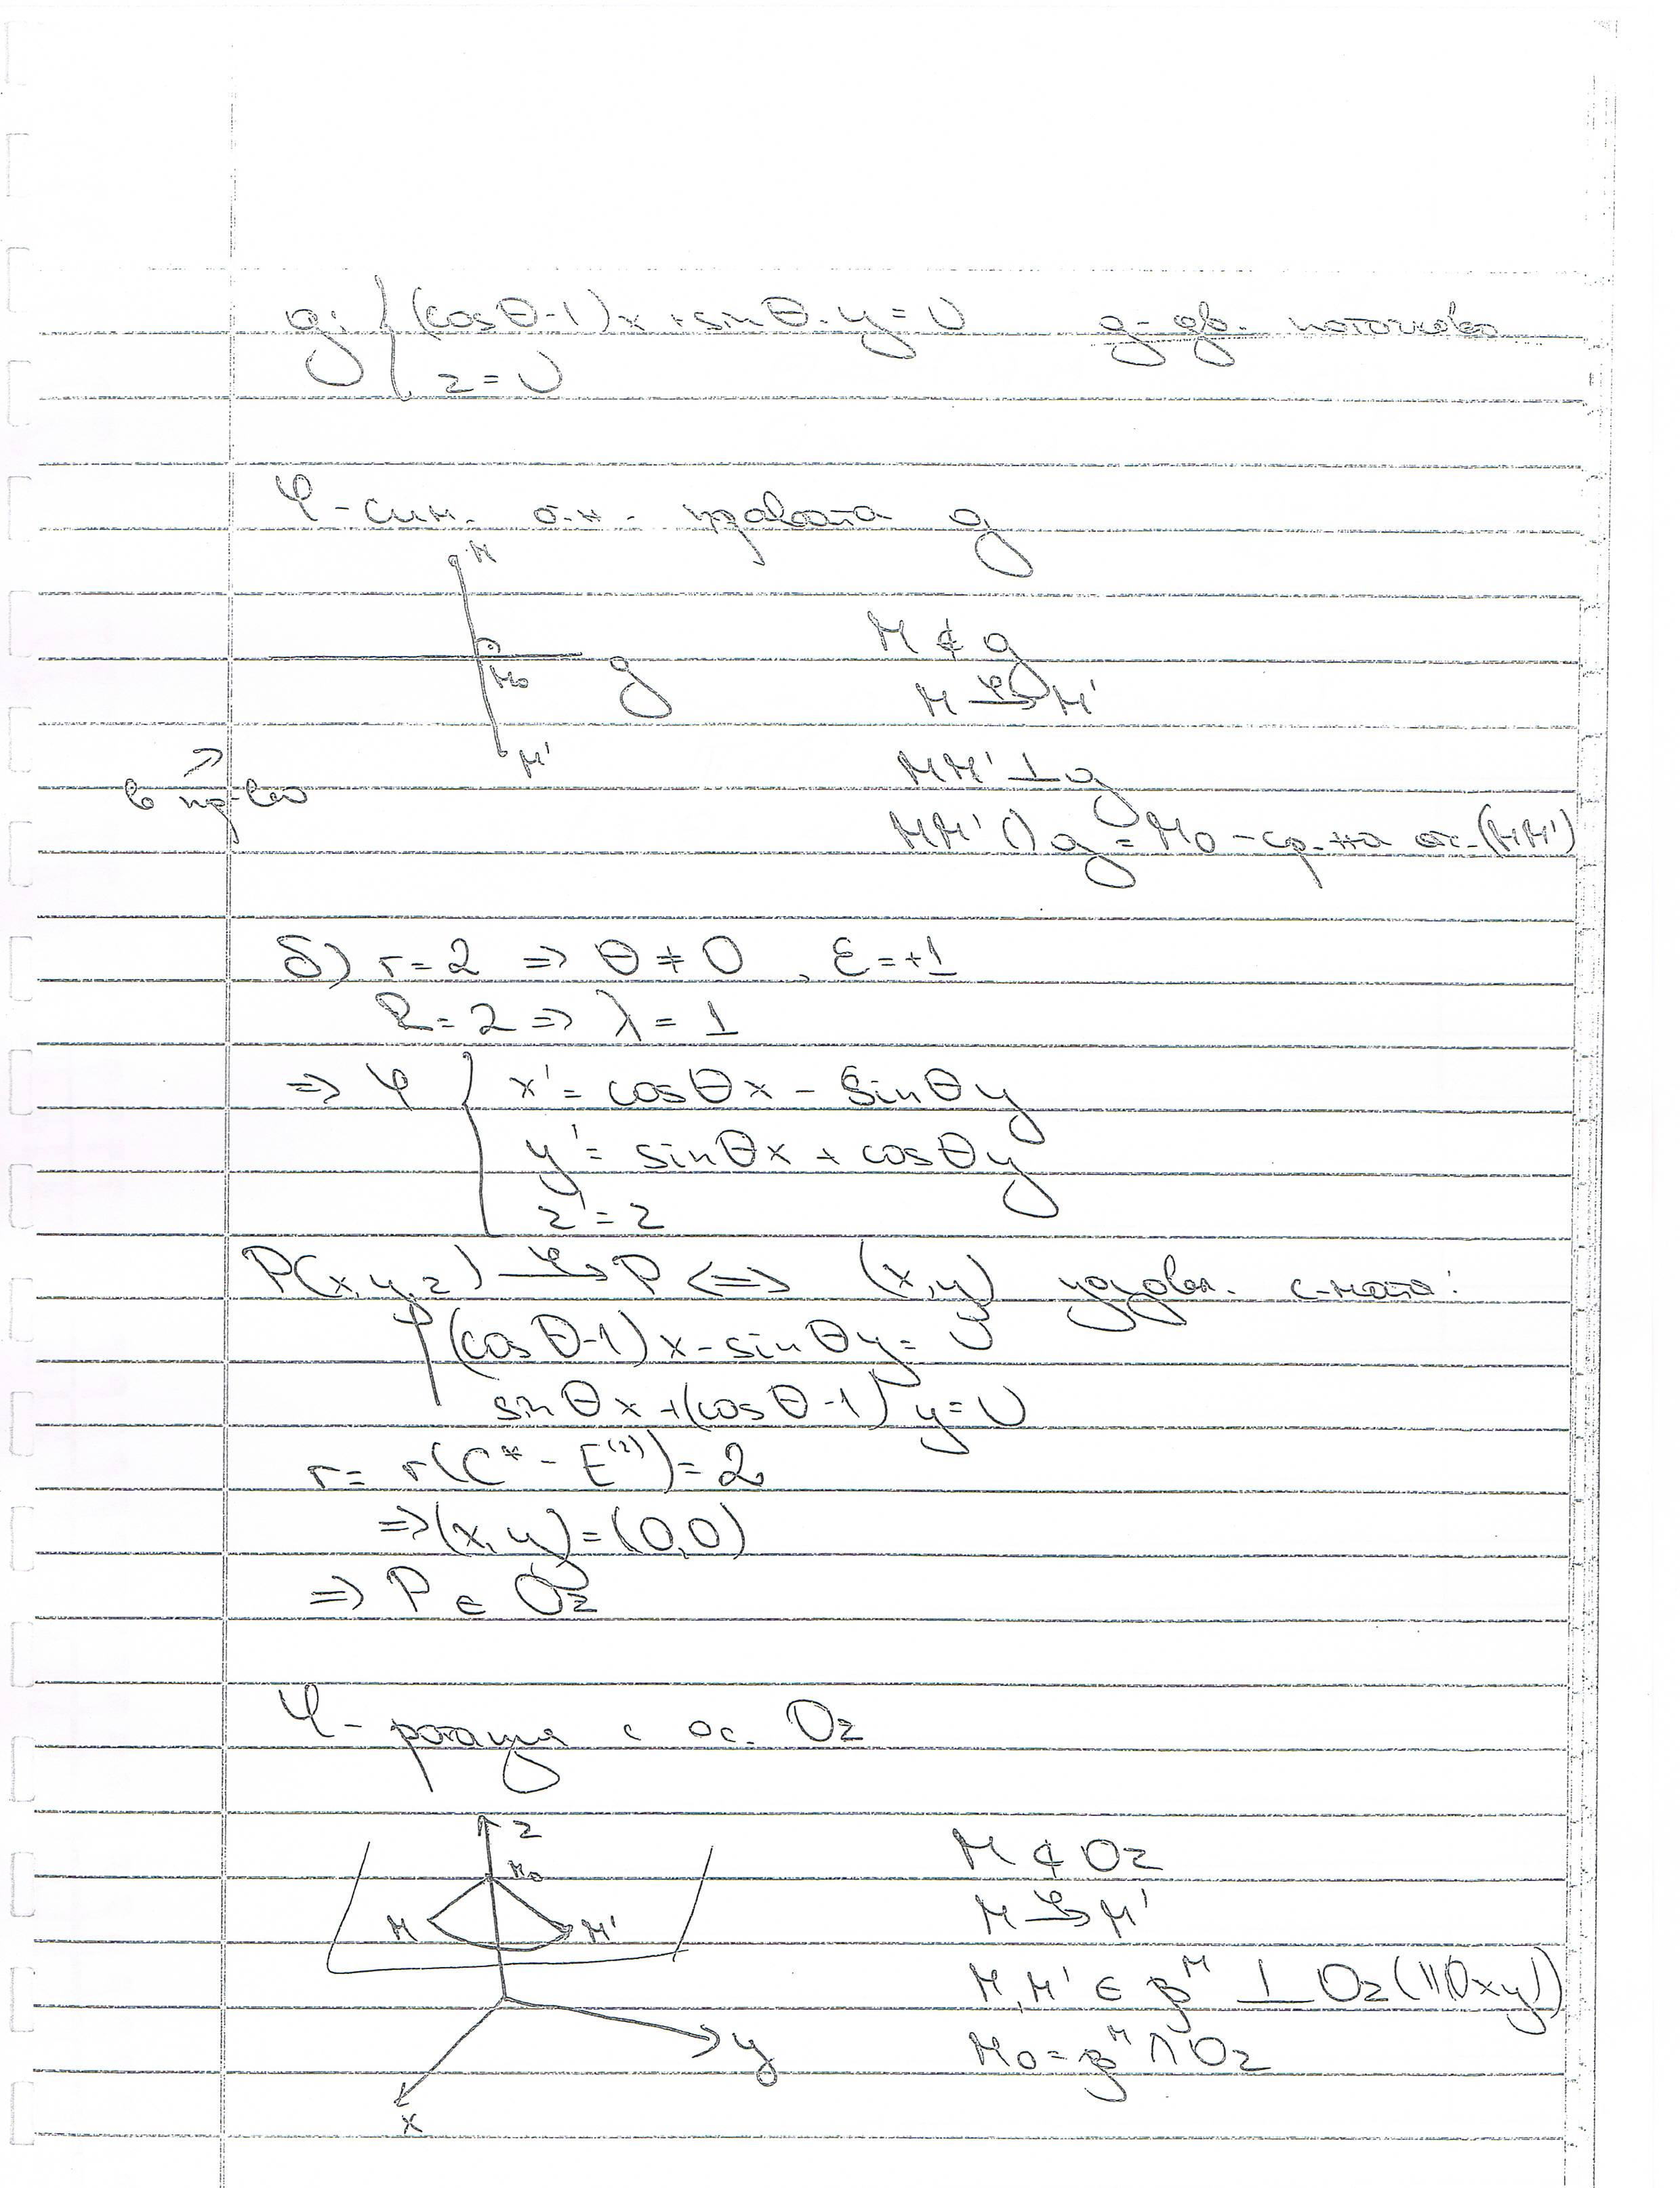 g: { (cosθ-1)x + sinθ.y = 0    g - дв. неподвижна
z = 0
φ - сим. отн. правата g
M
M ∉ g
M₀ g
M →φ M'
M'
MM' ⊥ g
в пр-во
MM' ∩ g = M₀ - ср. на от. (MM')
δ) r = 2 => θ ≠ 0, ε = +1
R = 2 => λ = 1
=> φ { x' = cosθx - sinθy
y' = sinθx + cosθy
z' = z
P(x,y,z) →φ P <=> (x,y) удовл. с-мата:
(cosθ-1)x - sinθy = 0
sinθx + (cosθ-1)y = 0
r = r(C* - E⁽²⁾) = 2
=> (x,y) = (0,0)
=> P ∈ Oz
φ - ротация с ос. Oz
z
M₀
M ∉ Oz
M M'
M →φ M'
M, M' ∈ βᴹ ⊥ Oz (|| Oxy)
y
M₀ = βᴹ ∩ Oz
x